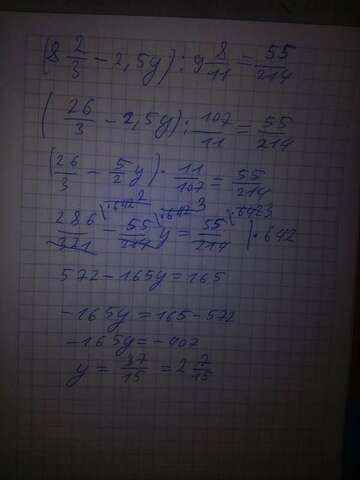 (8 2/3 - 2,5y) : 9 8/11 = 55/214
(26/3 - 2,5y) : 107/11 = 55/214
(26/3 - 5/2 y) · 11/107 = 55/214
286/321 \·642 2 - 55/214 \·642 3 y = 55/214 \·642 3 | · 642
572 - 165y = 165
-165y = 165 - 572
-165y = -407
y = 37/15 = 2 7/15